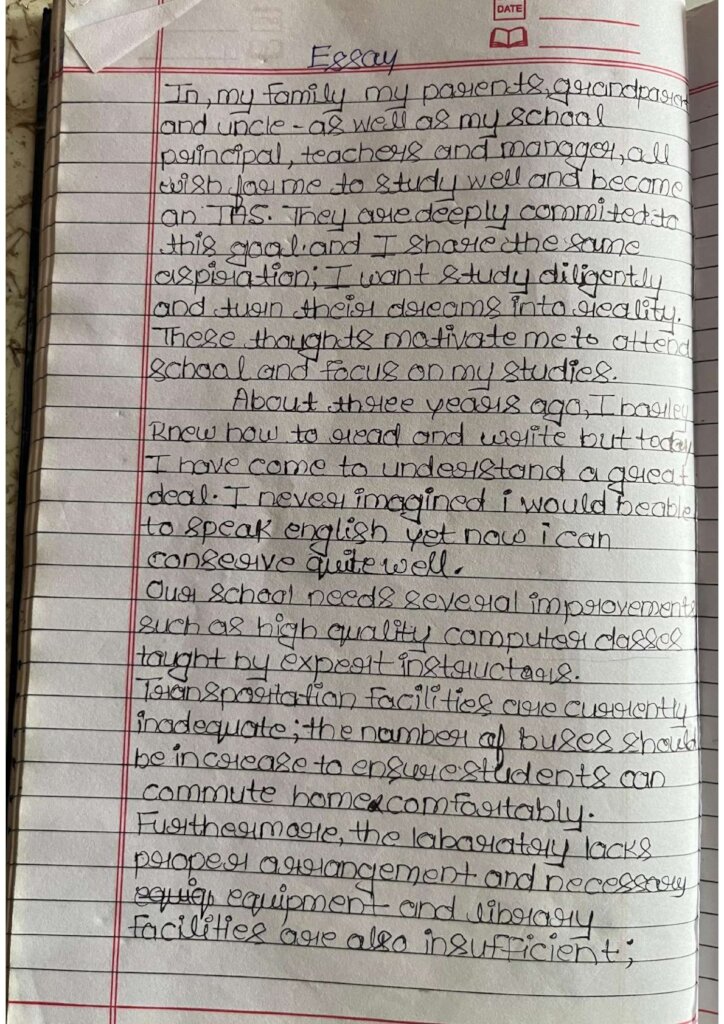 DATE
Essay
In, my family my parents, grandparent
and uncle - as well as my school
principal, teachers and manager, all
wish for me to study well and become
an IAS. They are deeply commited to
this goal. and I share the same
aspiration; I want study diligently
and turn their dreams into reality.
These thoughts motivate me to attend
school and focus on my studies.
About three years ago, I barley
knew how to read and write but today
I have come to understand a great
deal. I never imagined i would be able
to speak english yet now i can
conserve quite well.
Our school needs several improvements
such as high quality computer classes
taught by expert instructors.
Transportation facilities are currently
inadequate; the number of buses should
be increase to ensure students can
commute home comfortably.
Furthermore, the laboratory lacks
proper arrangement and necessary
equipment and library
facilities are also insufficient;